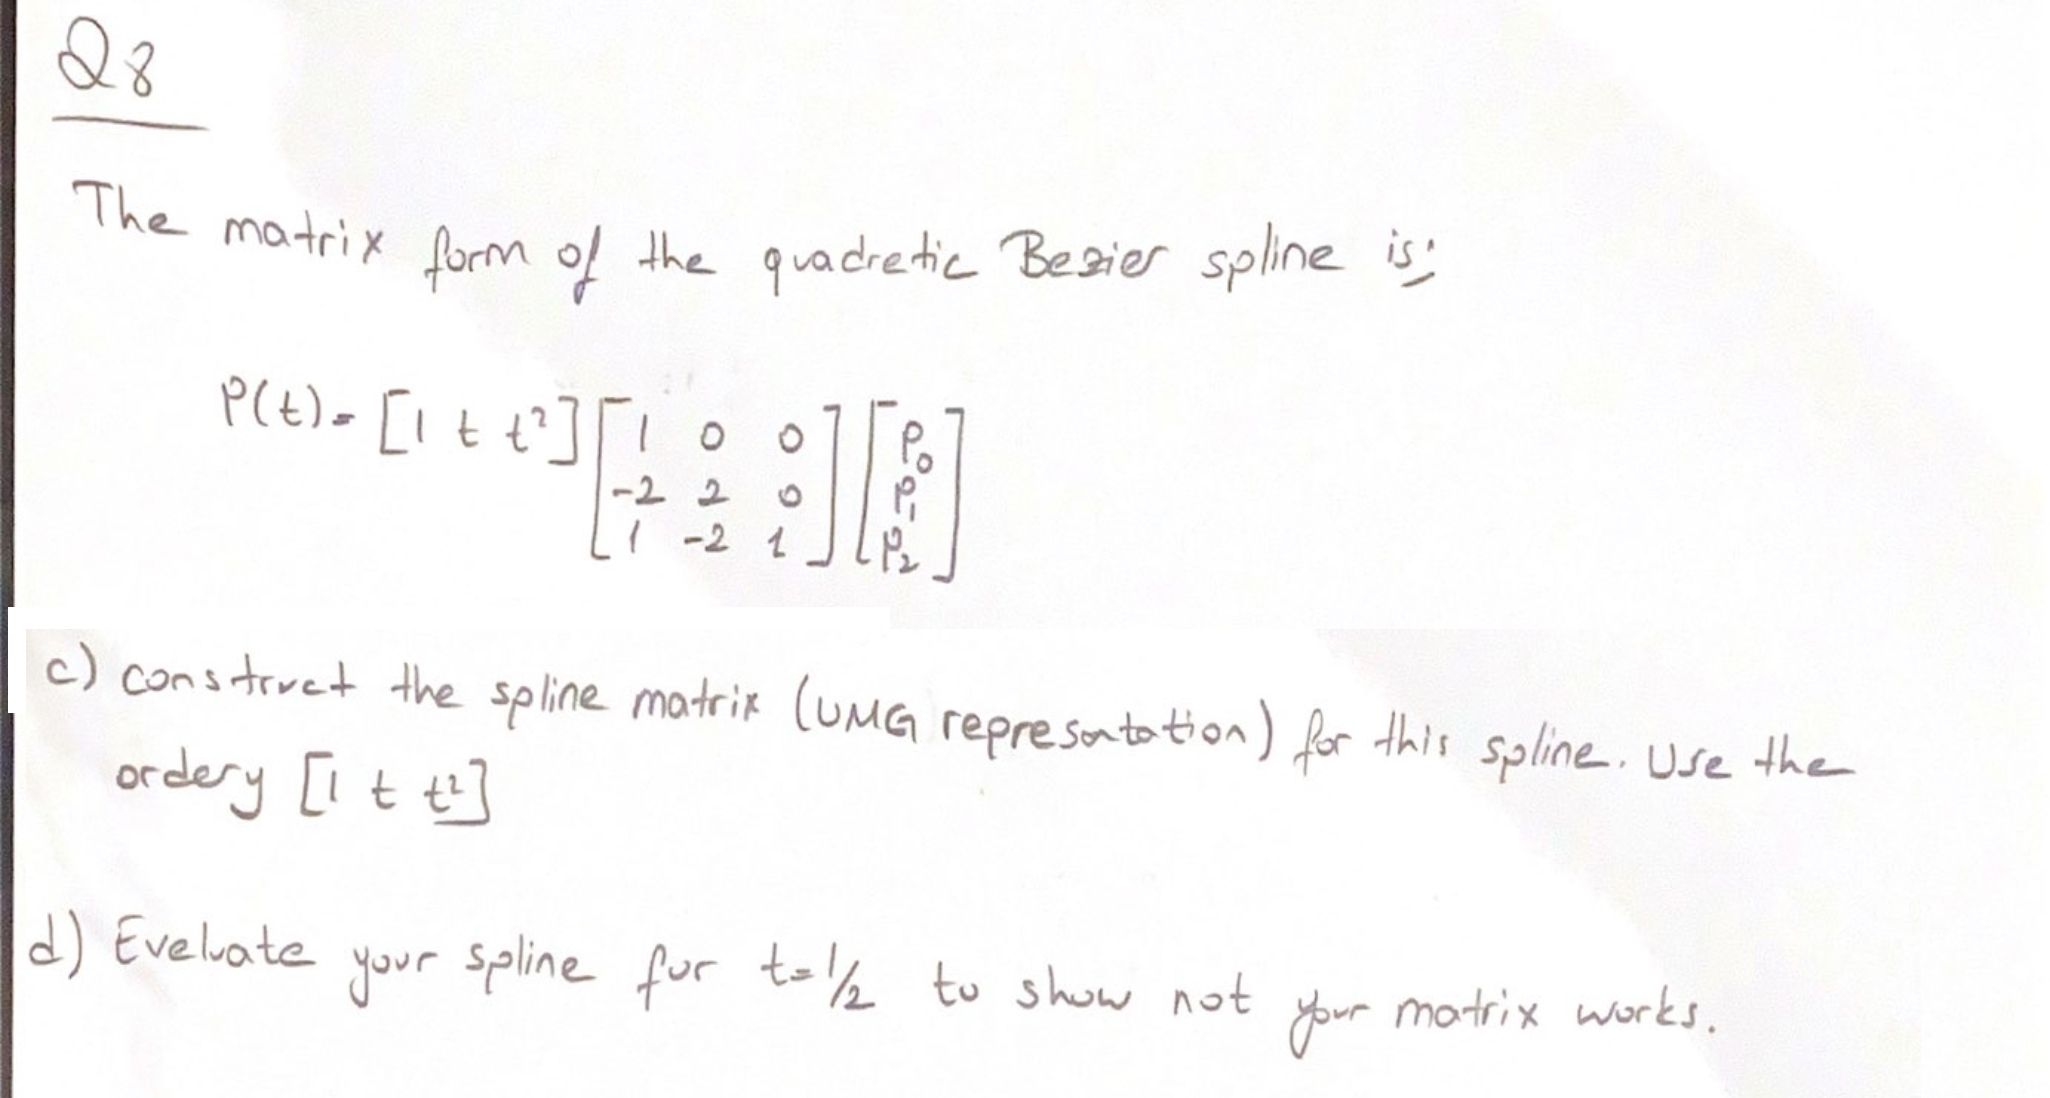 Q8
The matrix form of the quadretic Bezier spline is:
P(t) = [1 t t²] [1 0 0] [P₀]
[-2 2 0] [P₁]
[1 -2 1] [P₂]
c) construct the spline matrix (UMG represontation) for this spline. Use the
ordery [1 t t²]
d) Eveluate your spline for t=1/2 to show not your matrix works.